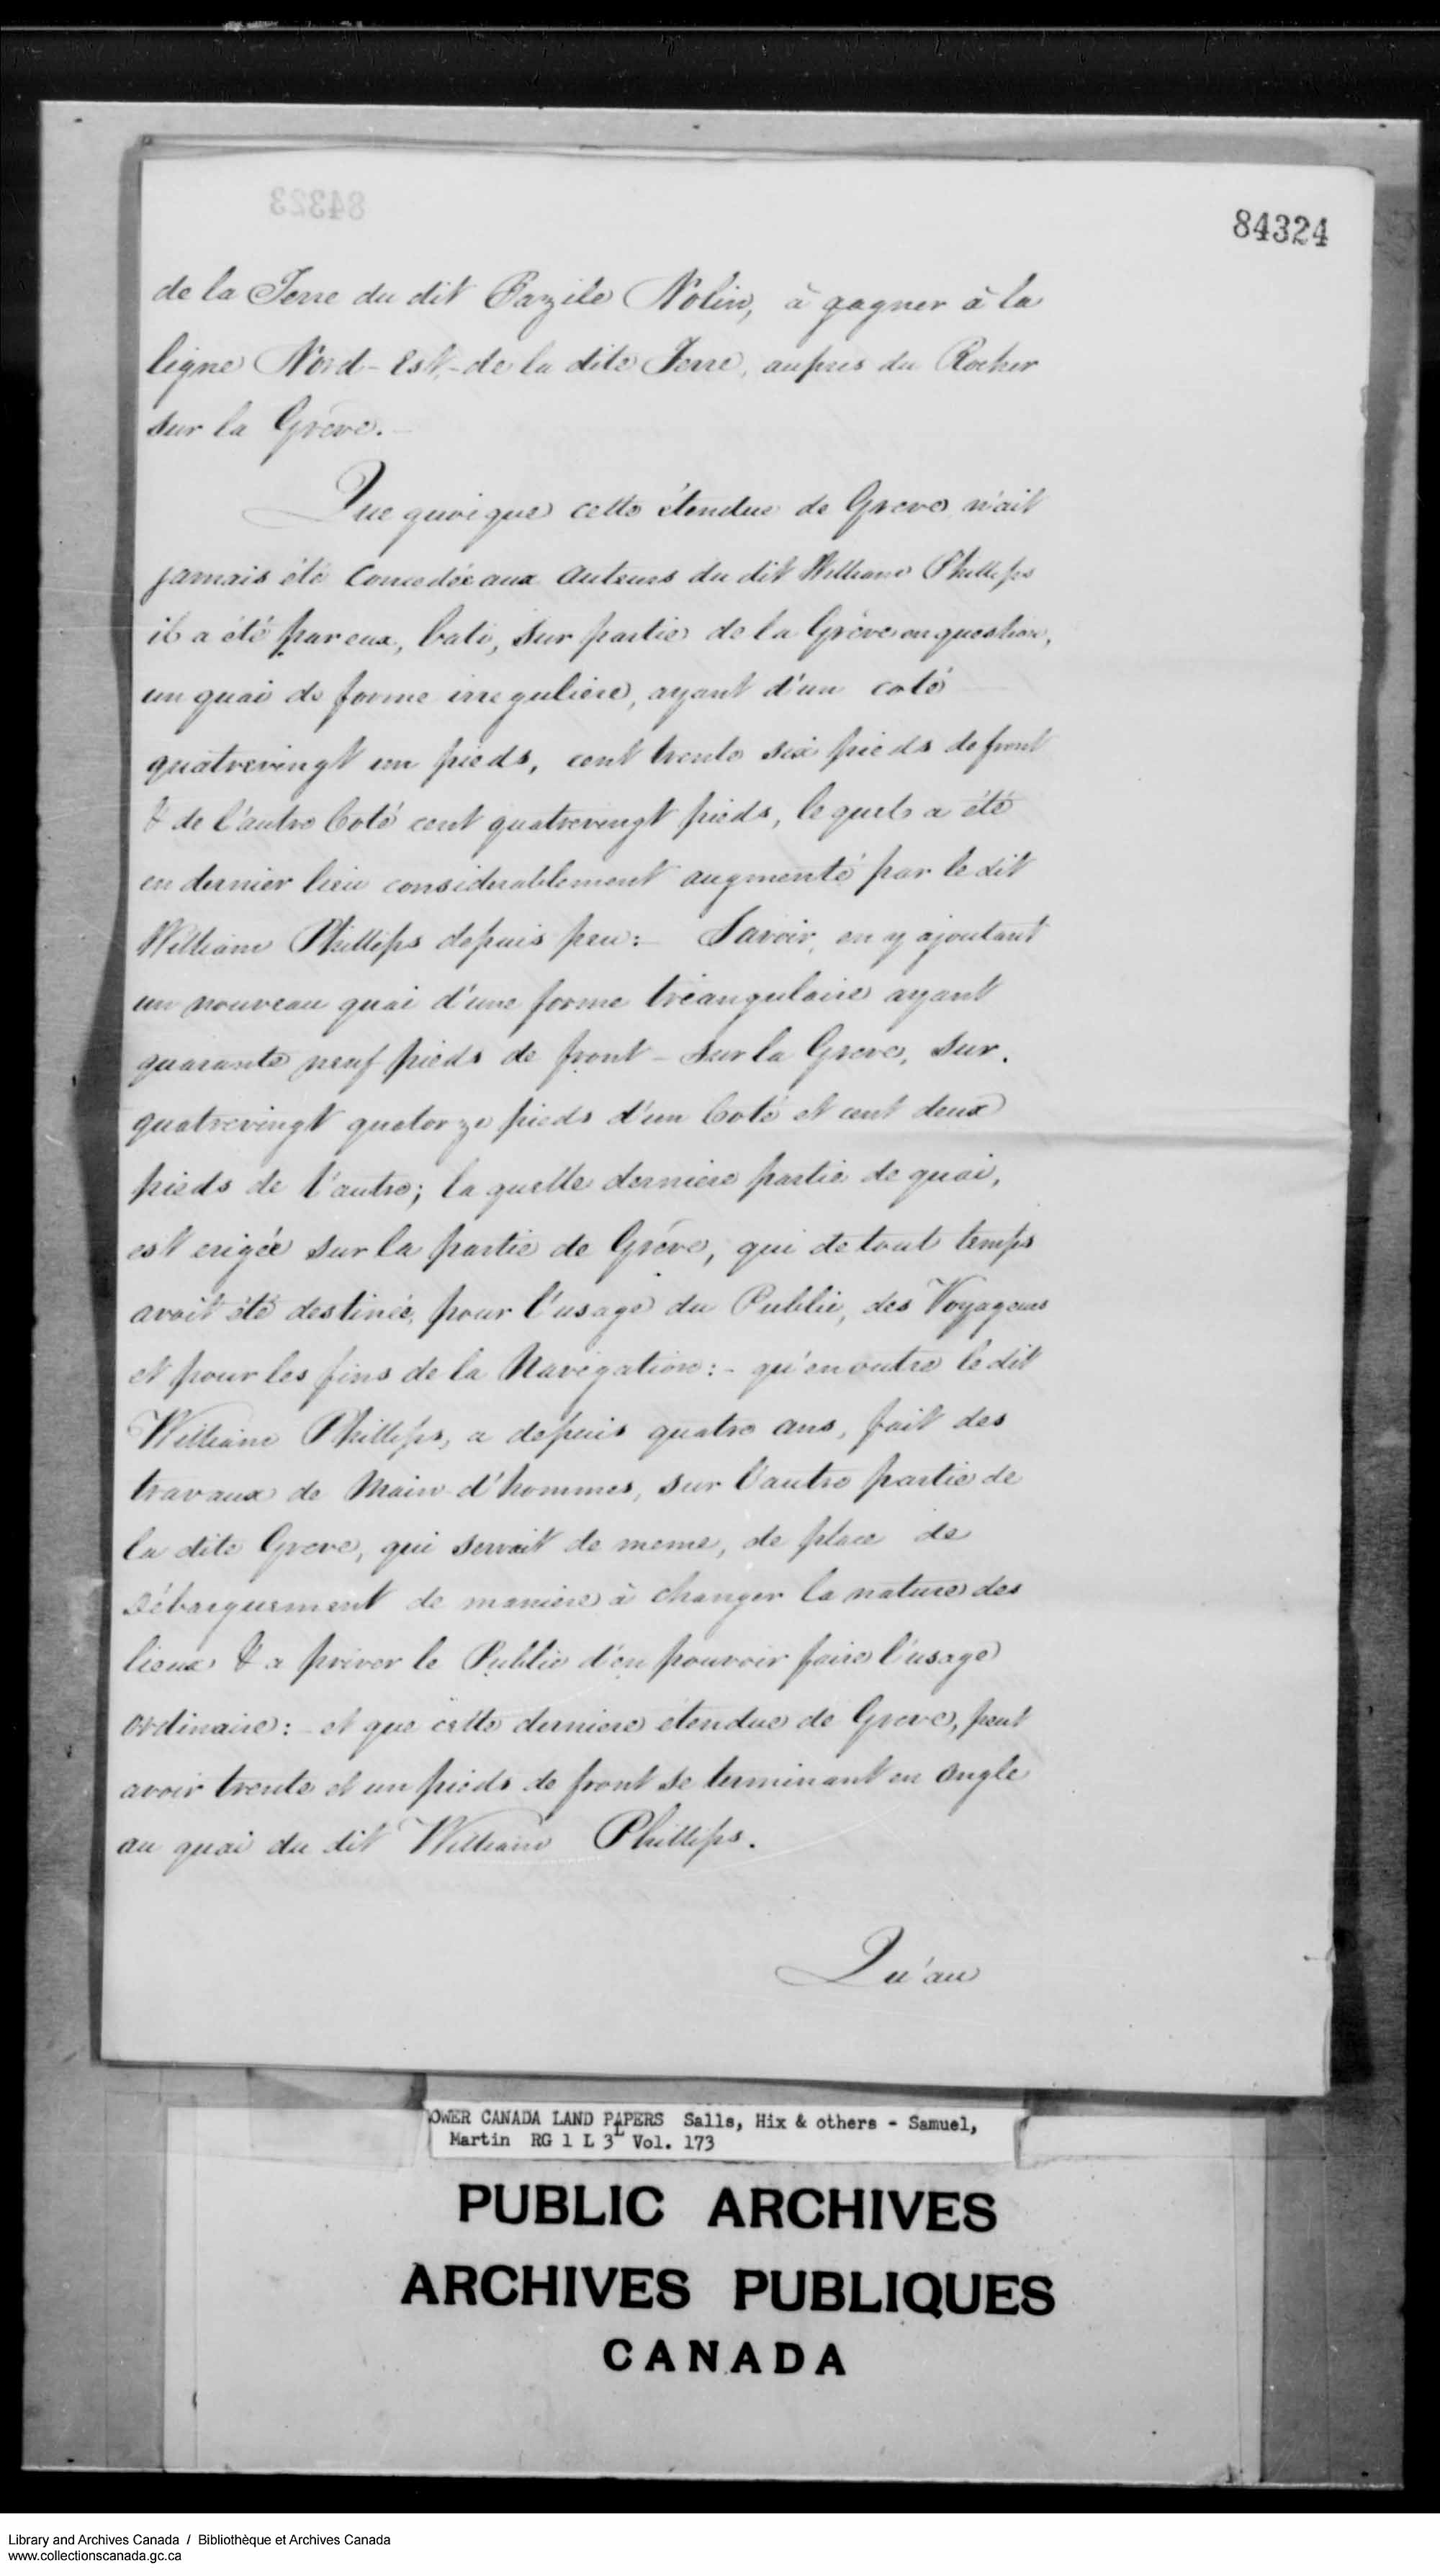 84323
84324
de la Terre du dit Bazile Nolin, à gagner à la
ligne Nord-Est-de la dite Terre, aupres du Rocher
sur la Grève.-
Que quoique cette étendue de Greve n'ait
jamais été Concedée aux Auteurs du dit William Phillips
il a été par eux, bati, sur partie de la Grève en question,
un quai de forme irreguliere, ayant d'un coté
quatrevingt un pieds, cent trente six pieds de front
& de l'autre Coté cent quatrevingt pieds, le quel a été
en dernier lieu considerablement augmenté par le dit
William Phillips depuis peu:- Savoir, en y ajoutant
un nouveau quai d'une forme triangulaire ayant
quarante neuf pieds de front - sur la Greve, sur.
quatrevingt quatorze pieds d'un Coté et cent deux
pieds de l'autre; la quelle derniere partie de quai,
est erigée sur la partie de Gréve, qui de tout temps
avoit été destinée, pour l'usage du Public, des Voyageurs
et pour les fins de la Navigation:- qu'en outre le dit
William Phillips, a depuis quatre ans, fait des
travaux de Main d'hommes, sur l'autre partie de
la dite Greve, qui servait de meme, de place de
Débarquement de maniere à changer la nature des
lieux & a priver le Public d'en pouvoir faire l'usage
Ordinaire:- et que cette derniere étendue de Greve, peut
avoir trente et un pieds de front se terminant en Angle
au quai du dit William Phillips.
Qu'au
OWER CANADA LAND PAPERS Salls, Hix & others - Samuel,
Martin RG 1 L 3L Vol. 173
PUBLIC ARCHIVES
ARCHIVES PUBLIQUES
CANADA
Library and Archives Canada / Bibliothèque et Archives Canada
www.collectionscanada.gc.ca